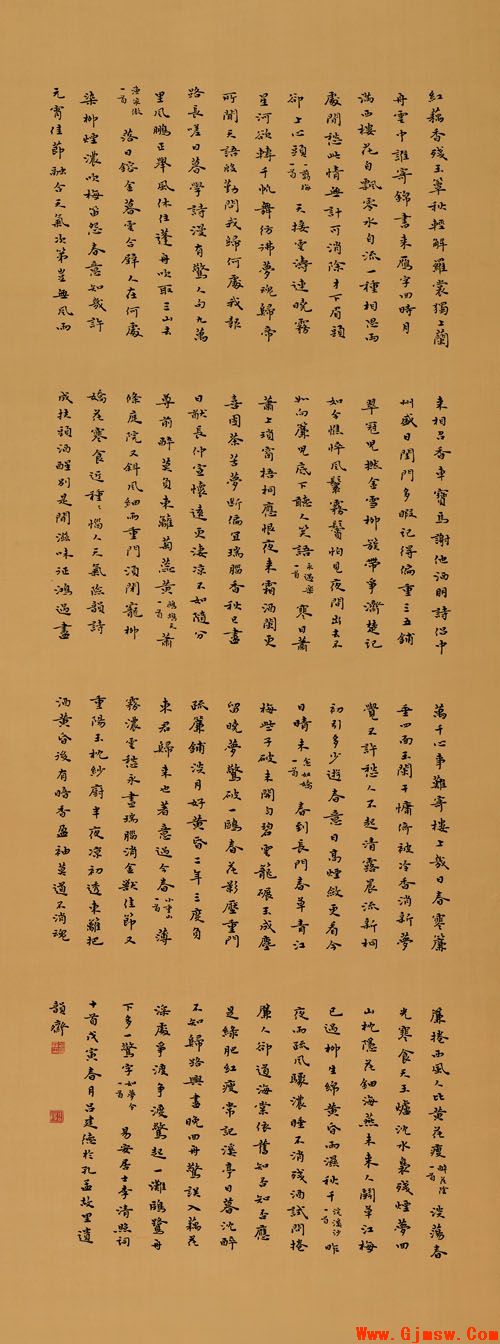 紅藕香殘玉簟秋輕解羅裳獨上蘭
舟雲中誰寄錦書來雁字回時月
滿西樓花自飄零水自流一種相思兩
處閒愁此情無計可消除才下眉頭
卻上心頭 一剪梅一首 天接雲濤連曉霧
星河欲轉千帆舞彷彿夢魂歸帝
所聞天語殷勤問我歸何處我報
路長嗟日暮學詩漫有驚人句九萬
里風鵬正舉風休住蓬舟吹取三山去
漁家傲一首 落日鎔金暮雲合璧人在何處
染柳煙濃吹梅笛怨春意知幾許
元宵佳節融合天氣次第豈無風雨
來相召香車寶馬謝他酒朋詩侶中
州盛日閨門多暇記得偏重三五鋪
翠冠兒撚金雪柳簇帶爭濟楚記
如今憔悴風鬟霧鬢怕見夜間出去不
如向簾兒底下聽人笑語 永遇樂一首 寒日蕭
蕭上瑣窗梧桐應恨夜來霜酒闌更
喜團茶苦夢斷偏宜瑞腦香秋已盡
日猶長仲宣懷遠更淒涼不如隨分
尊前醉莫負東籬菊蕊黃 鷓鴣天一首 蕭
條庭院又斜風細雨重門須閉寵柳
嬌花寒食近種種惱人天氣險韻詩
成扶頭酒醒別是閒滋味征鴻過盡
萬千心事難寄樓上幾日春寒簾
垂四面玉闌干慵倚被冷香消新夢
覺不許愁人不起清露晨流新桐
初引多少遊春意日高煙斂更看今
日晴未 念奴嬌一首 春到長門春草青江
梅些子破未開勻碧雲籠碾玉成塵
留曉夢驚破一甌春花影壓重門
疏簾鋪淡月好黃昏二年三度負
東君歸來也著意過今春 小重山一首 薄
霧濃雲愁永晝瑞腦消金獸佳節又
重陽玉枕紗廚半夜涼初透東籬把
酒黃昏後有暗香盈袖莫道不消魂
簾捲西風人比黃花瘦 醉花陰一首 淡蕩春
光寒食天玉爐沈水裊殘煙夢回
山枕隱花鈿海燕未來人鬥草江梅
已過柳生綿黃昏雨濕秋千 浣溪沙一首 昨
夜雨疏風驟濃睡不消殘酒試問捲
簾人卻道海棠依舊知否知否應
是綠肥紅瘦常記溪亭日暮沈醉
不知歸路興盡晚回舟驚誤入藕花
深處爭渡爭渡驚起一灘鷗鷺舟
下多一驚字 如夢令一首 易安居士李清照詞
十首戊寅春月呂建德於孔孟故里遺
韻齋
Www.Gjmsw.Com